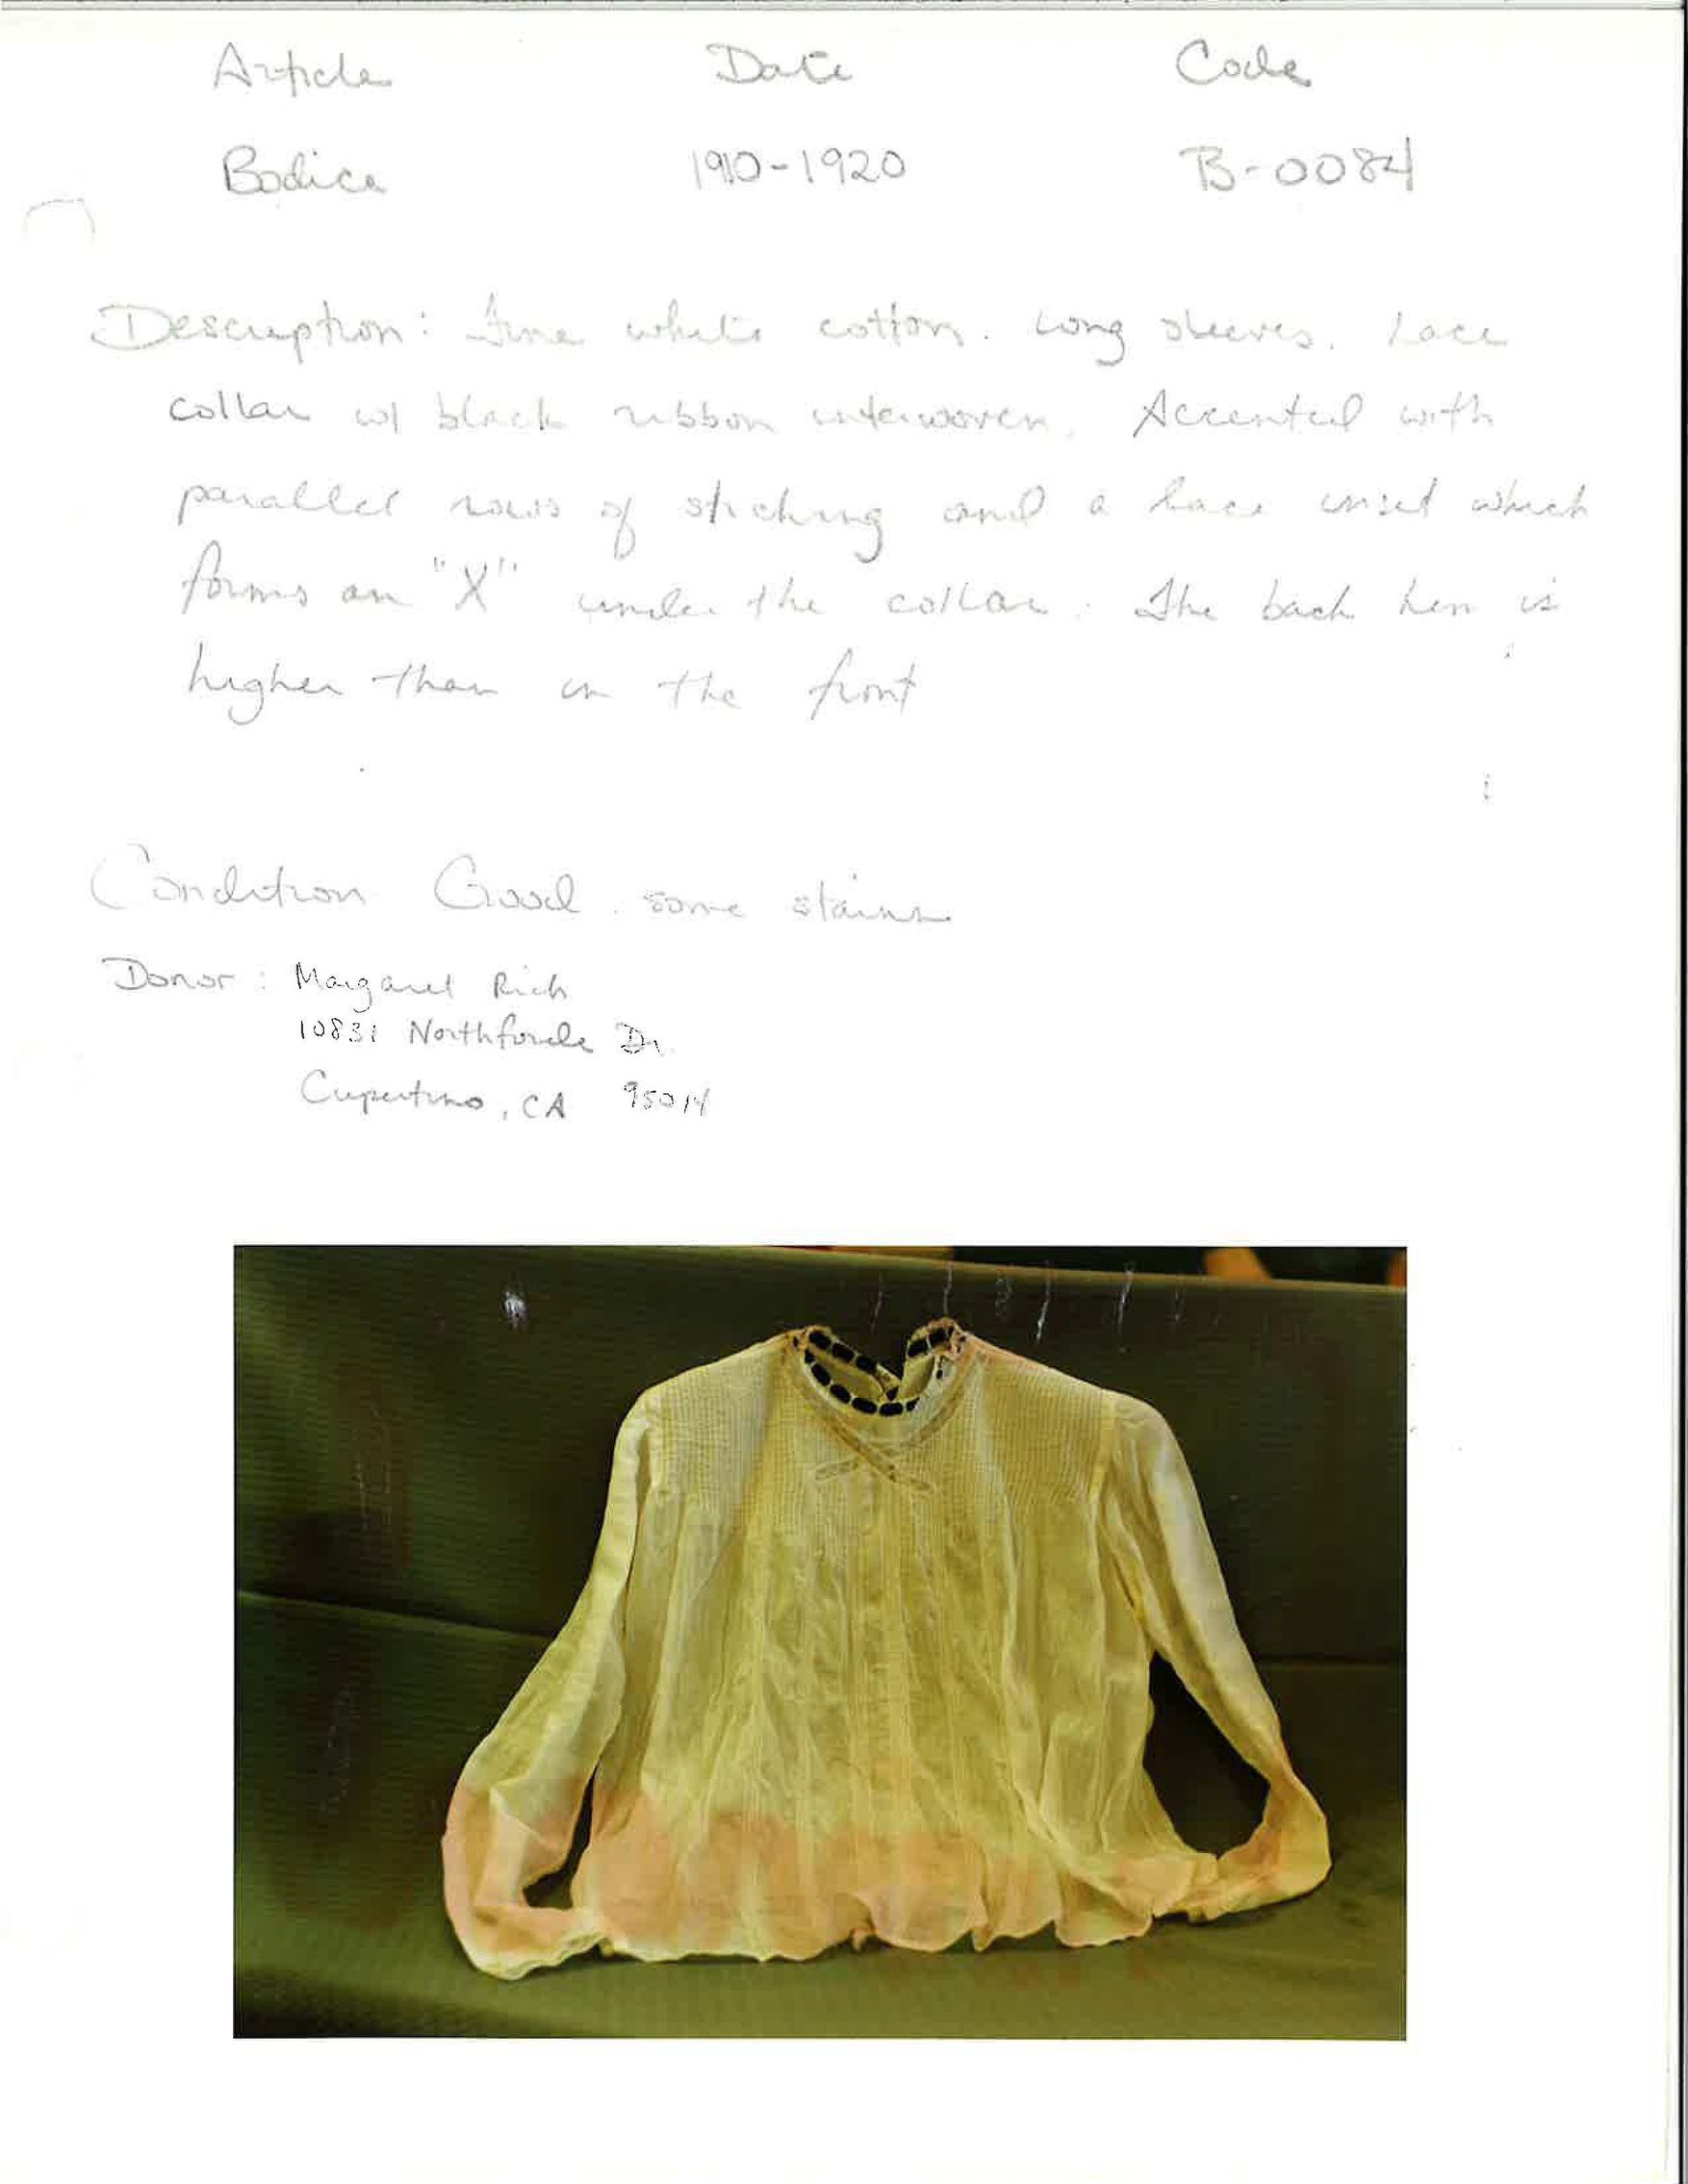 Article Date Code
Bodice 1910-1920 B-0084
Description: Fine white cotton. Long sleeves. Lace
collar w/ black ribbon interwoven. Accented with
parallel rows of stiching and a lace inset which
forms an "X" under the collar. The back hem is
higher than in the front
Condition Good. some stains
Donor: Margaret Rich
10831 Northforde Dr.
Cupertino, CA 95014